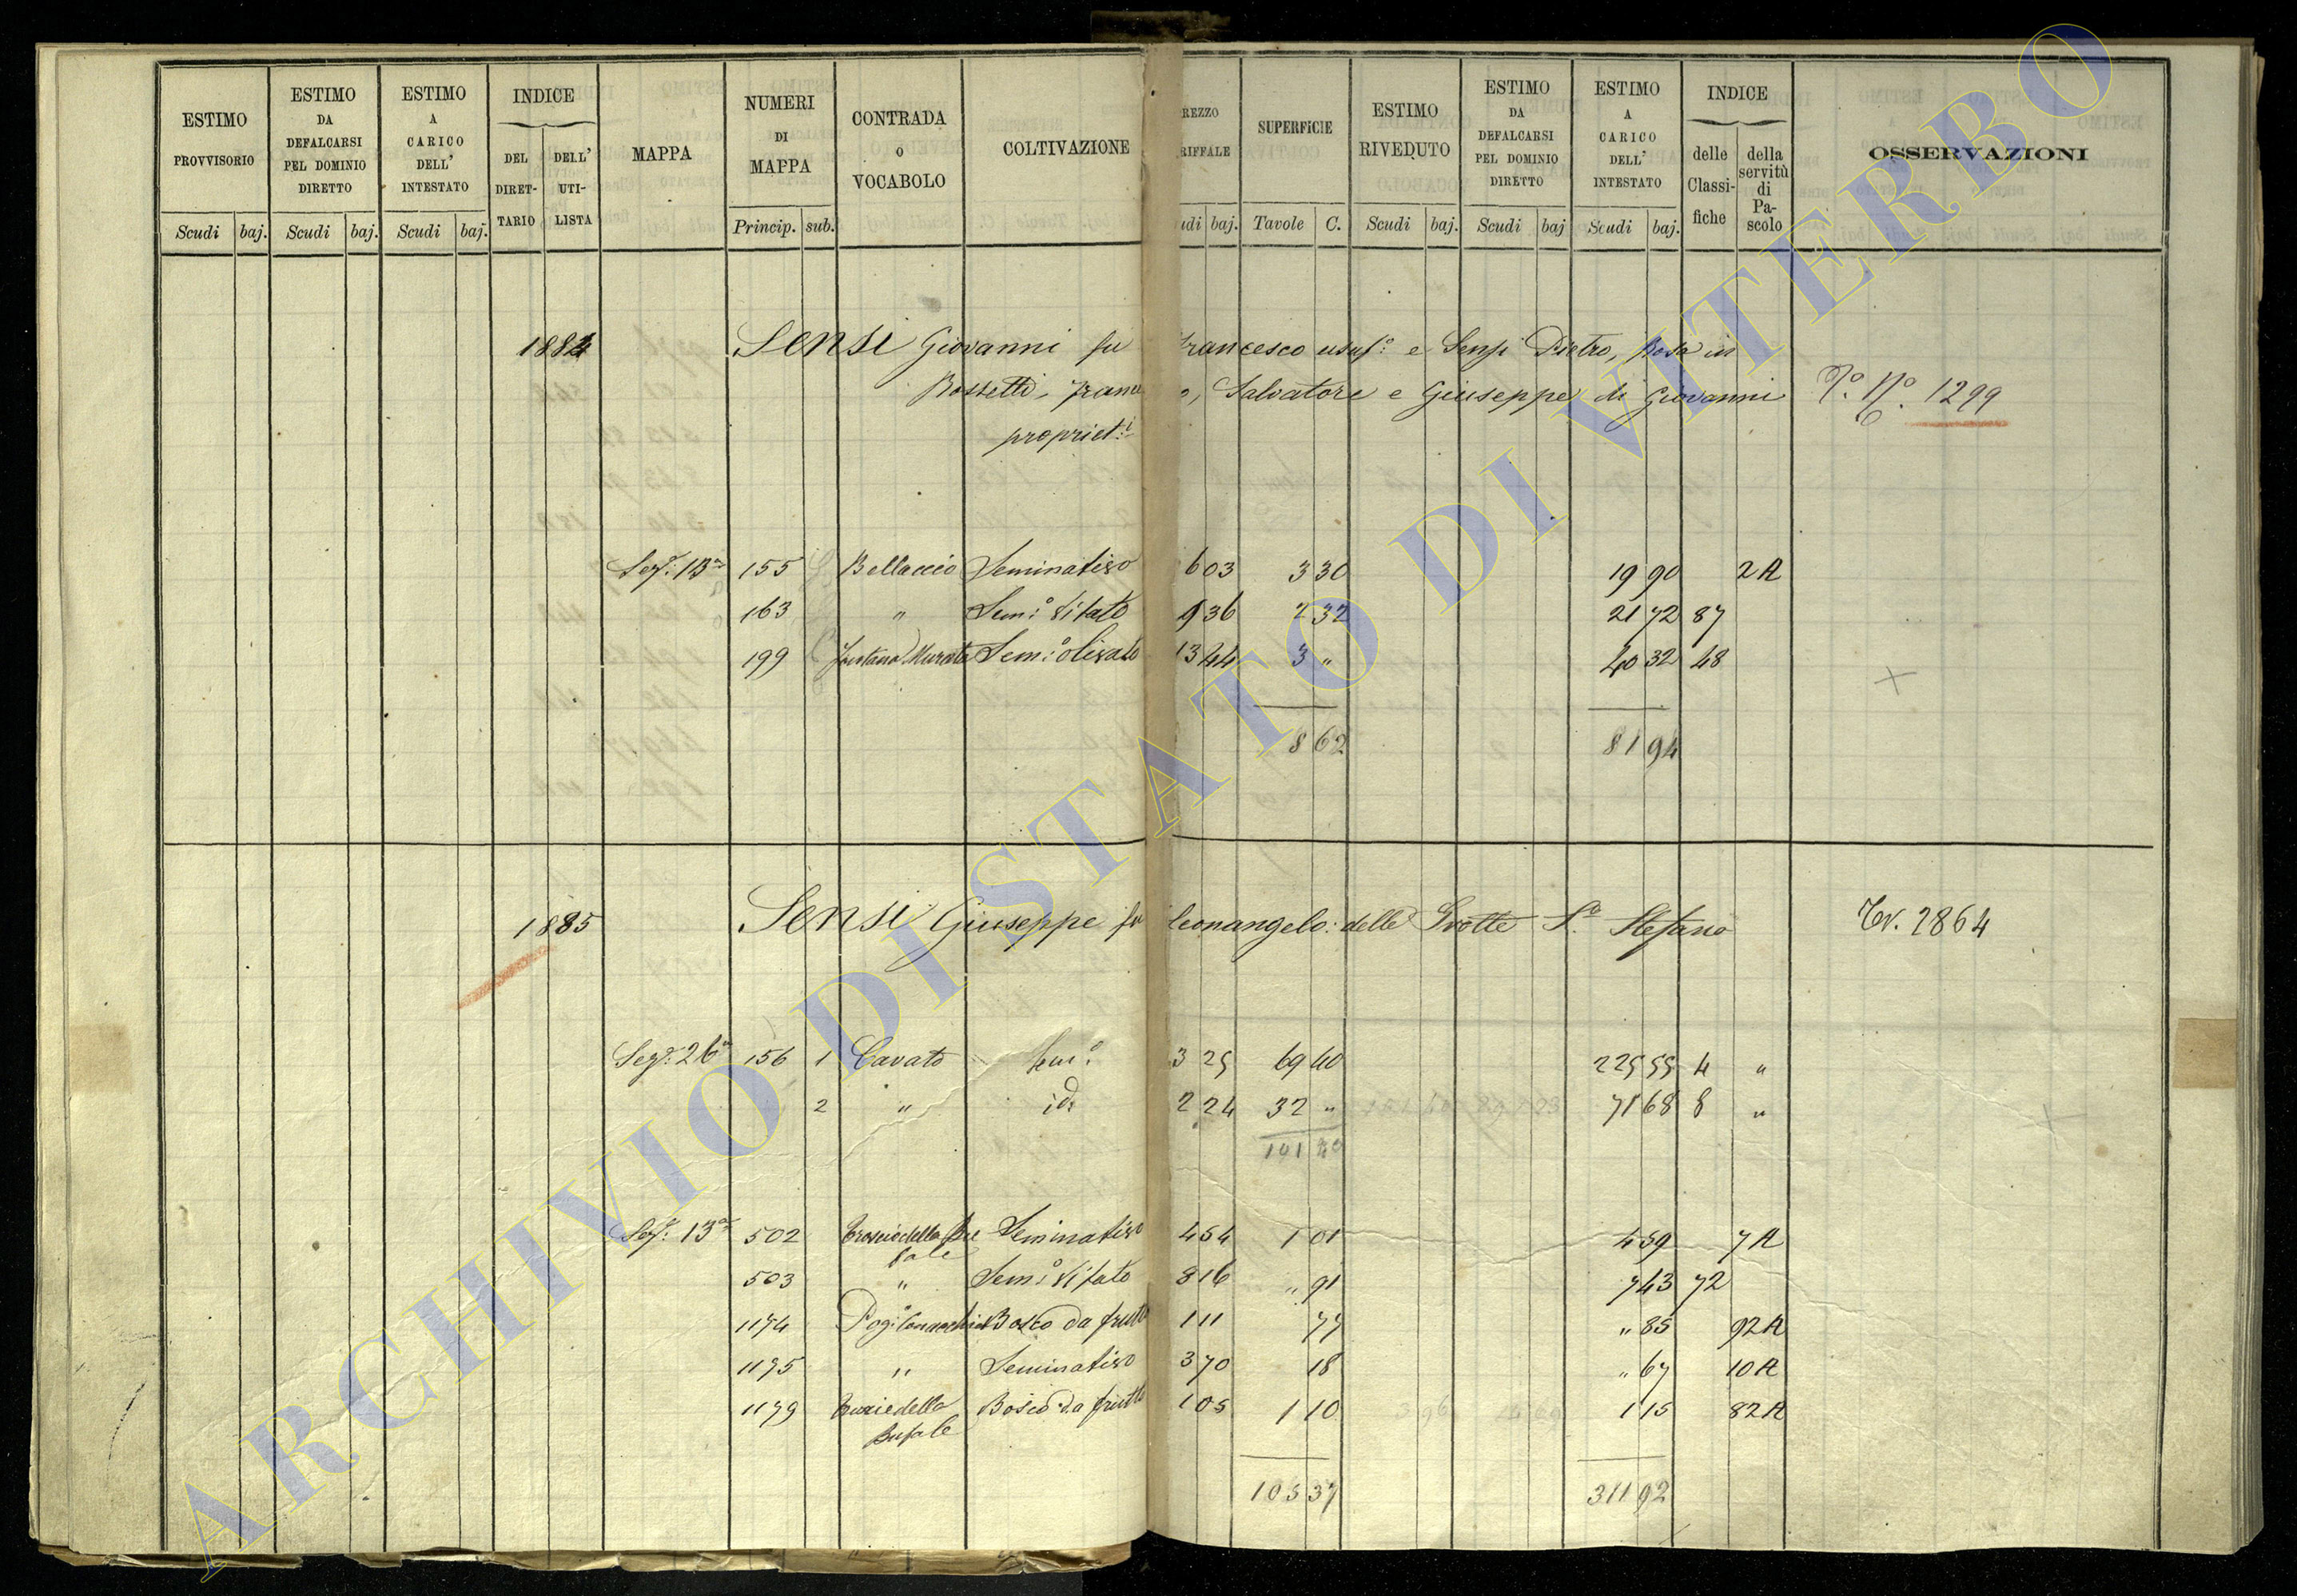 ESTIMO PROVVISORIO
ESTIMO DA DEFALCARSI PEL DOMINIO DIRETTO
ESTIMO A CARICO DELL' INTESTATO
INDICE
DEL DIRET-TARIO
DELL' UTI-LISTA
MAPPA
NUMERI DI MAPPA
CONTRADA O VOCABOLO
COLTIVAZIONE
REZZO RIFFALE
SUPERFICIE
ESTIMO RIVEDUTO
ESTIMO DA DEFALCARSI PEL DOMINIO DIRETTO
ESTIMO A CARICO DELL' INTESTATO
INDICE
delle Classi-fiche
della servitù di Pa-scolo
OSSERVAZIONI
Scudi baj. Scudi baj. Scudi baj. Princip. sub. udi baj. Tavole C. Scudi baj. Scudi baj Scudi baj.
1884 Sensi Giovanni fu Francesco usuf.o e Sensi Pietro, Rosa in
Bossetti, Francesco, Salvatore e Giuseppe di Giovanni P.o N.o 1299
propriet.i
Sez. 13a 155 Bellaccio Seminativo 6 03 3 30 19 90 2A
163 " Sem:o Vitato 9 36 2 32 21 72 87
199 Fontana Murata Sem:o olivato 13 44 3 " 40 32 48
8 62 81 94
1885 Sensi Giuseppe fu Leonangelo: delle Grotte S.o Stefano Tv. 2864
Sez. 26a 156 1 Cavato Sem.o 3 25 69 40 225 55 4 "
2 " id. 2 24 32 " 71 68 8 "
101 40
Sez. 13a 502 Seminativo 4 54 1 01 4 59 7A
503 " Sem:o Vitato 8 16 " 91 7 43 72
1174 Bosco da frutto 1 11 77 " 85 92A
1175 " Seminativo 3 70 18 " 67 10A
1179 della Bufale Bosco da frutto 1 05 1 10 1 15 82A
105 37 311 92
ARCHIVIO DI STATO DI VITERBO